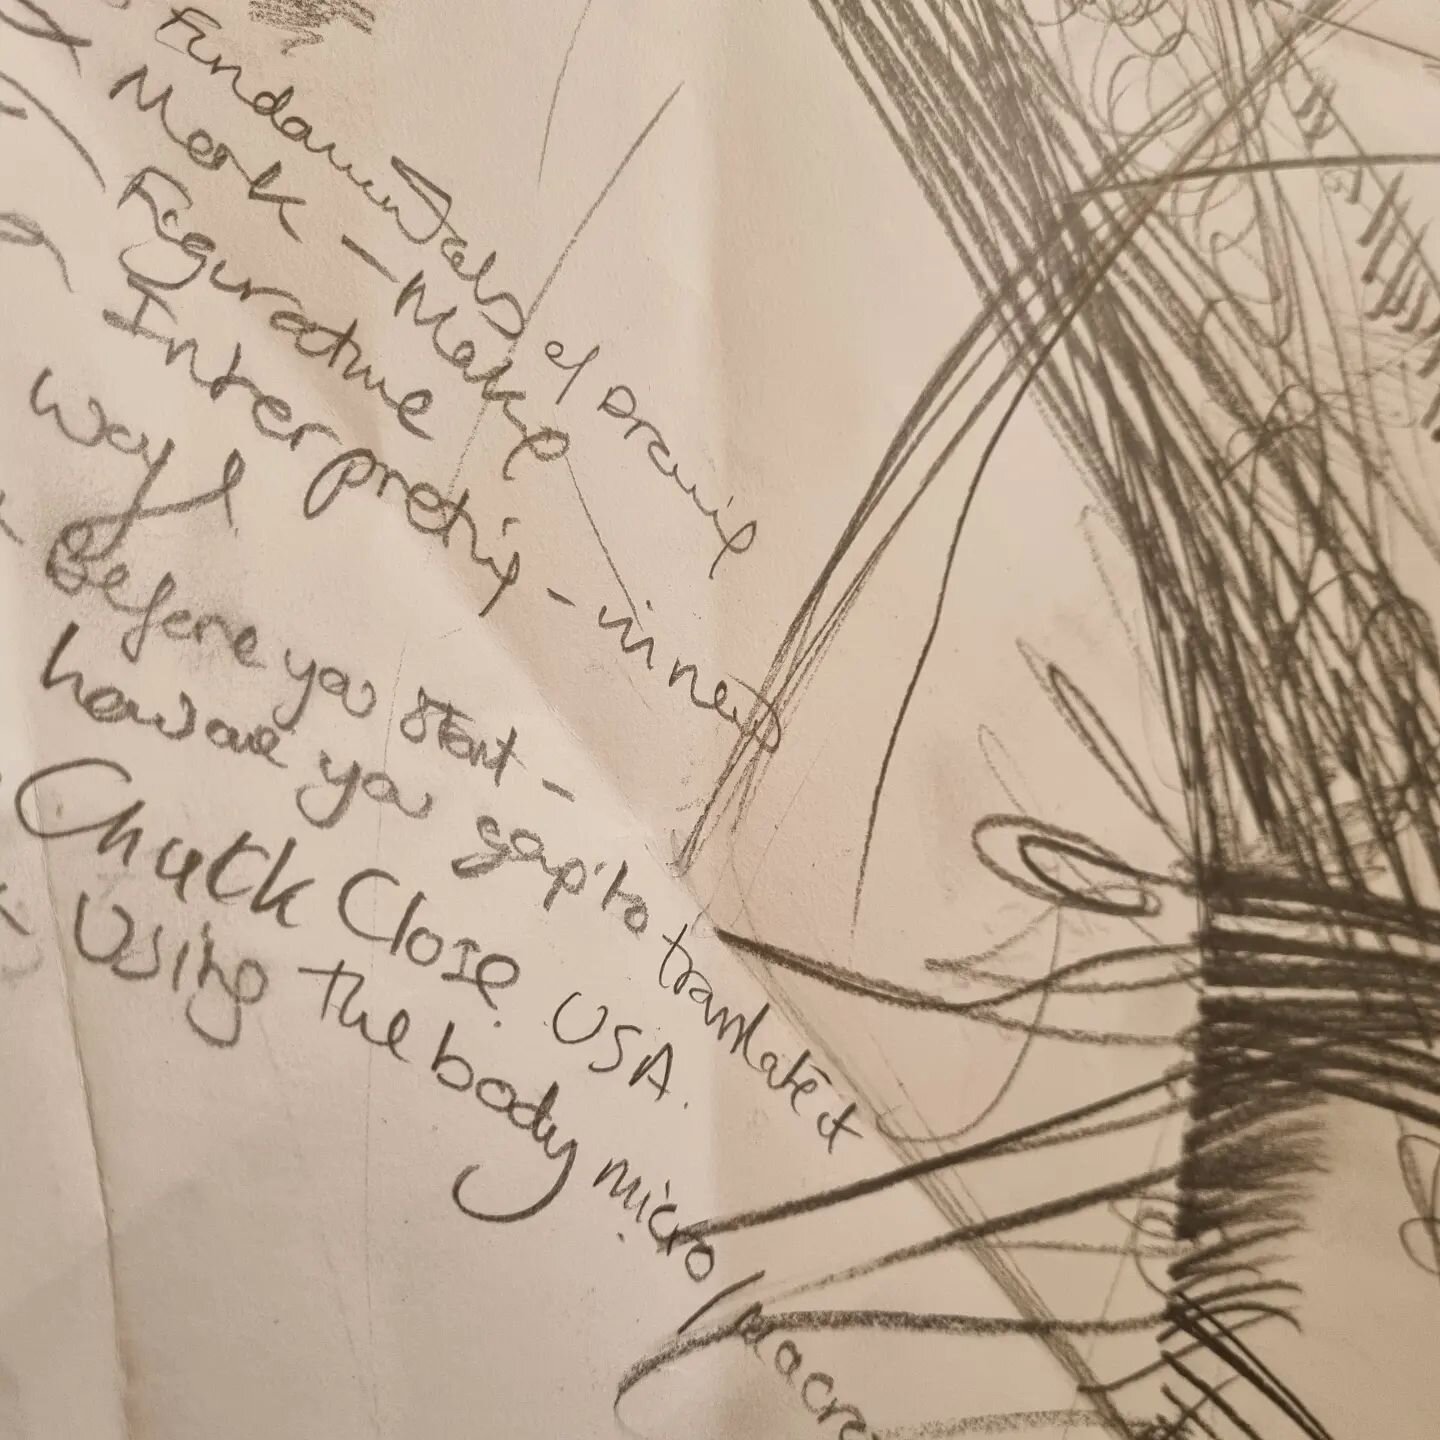 Fundamentals of drawing
Mark-Making
Figurative
Interpreting - in new
way
Before you start -
how are you going to translate it
Chuck Close. USA.
Using the body micro/macro